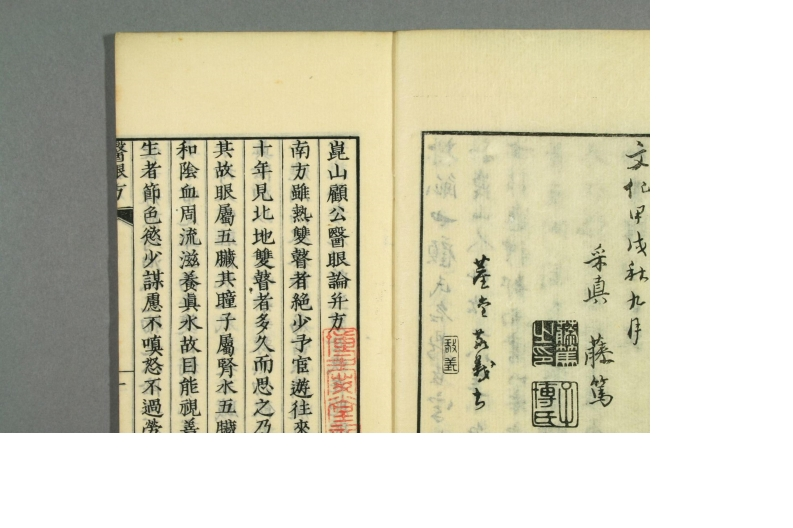 文化甲戌秋九月
采真 藤篤
藤篤
之印
子
博氏
敬義
崑山顧公醫眼論并方
南方雖熱雙瞽者絶少予宦遊往來
十年見北地雙瞽者多久而思之乃
其故眼屬五臟其瞳子屬腎水五臟
和陰血周流滋養眞水故目能視善
生者節色慾少謀慮不嗔怒不過勞
醫眼方